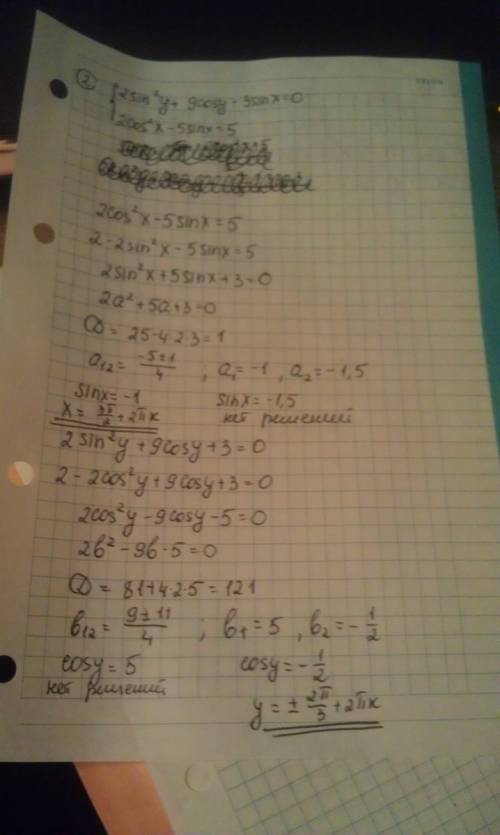 ② { 2sin²y + 9cosy - 3sinx = 0
2cos²x - 5sinx = 5
2cos²x - 5sinx = 5
2 - 2sin²x - 5sinx = 5
2sin²x + 5sinx + 3 = 0
2a² + 5a + 3 = 0
D = 25 - 4·2·3 = 1
a₁₂ = (-5±1)/4 , a₁ = -1 , a₂ = -1,5
sinx = -1 sinx = -1,5
x = 3π/2 + 2πk нет решений
2sin²y + 9cosy + 3 = 0
2 - 2cos²y + 9cosy + 3 = 0
2cos²y - 9cosy - 5 = 0
2b² - 9b - 5 = 0
D = 81 + 4·2·5 = 121
b₁₂ = (9±11)/4 ; b₁ = 5 , b₂ = -1/2
cosy = 5 cosy = -1/2
нет решений y = ± 2π/3 + 2πk